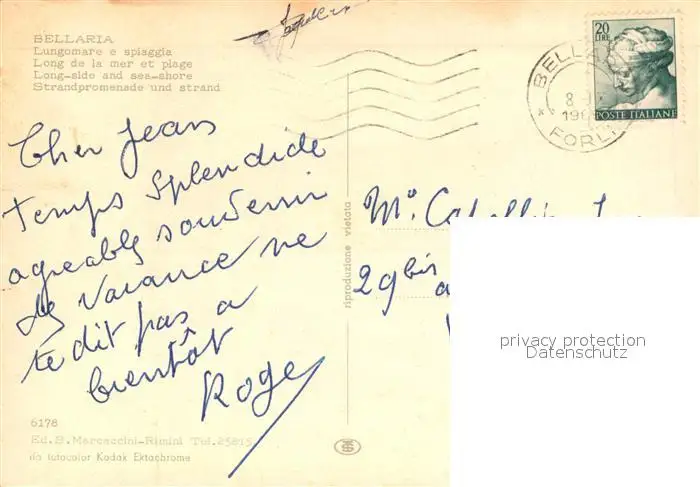 BELLARIA
Lungomare e spiaggia
Long de la mer et plage
Long-side and sea-shore
Strandpromenade und strand
20
LIRE
POSTE ITALIANE
BELLA
8
19
FORLI
Cher Jean
Temps Splendide
agreable souvenir
de vacance ne
te dit pas a
bientôt
Roger
riproduzione vietata
Mr.
29 bis
privacy protection
Datenschutz
6178
Ed. S. Marcaccini-Rimini Tel. 25815
da fotocolor Kodak Ektachrome